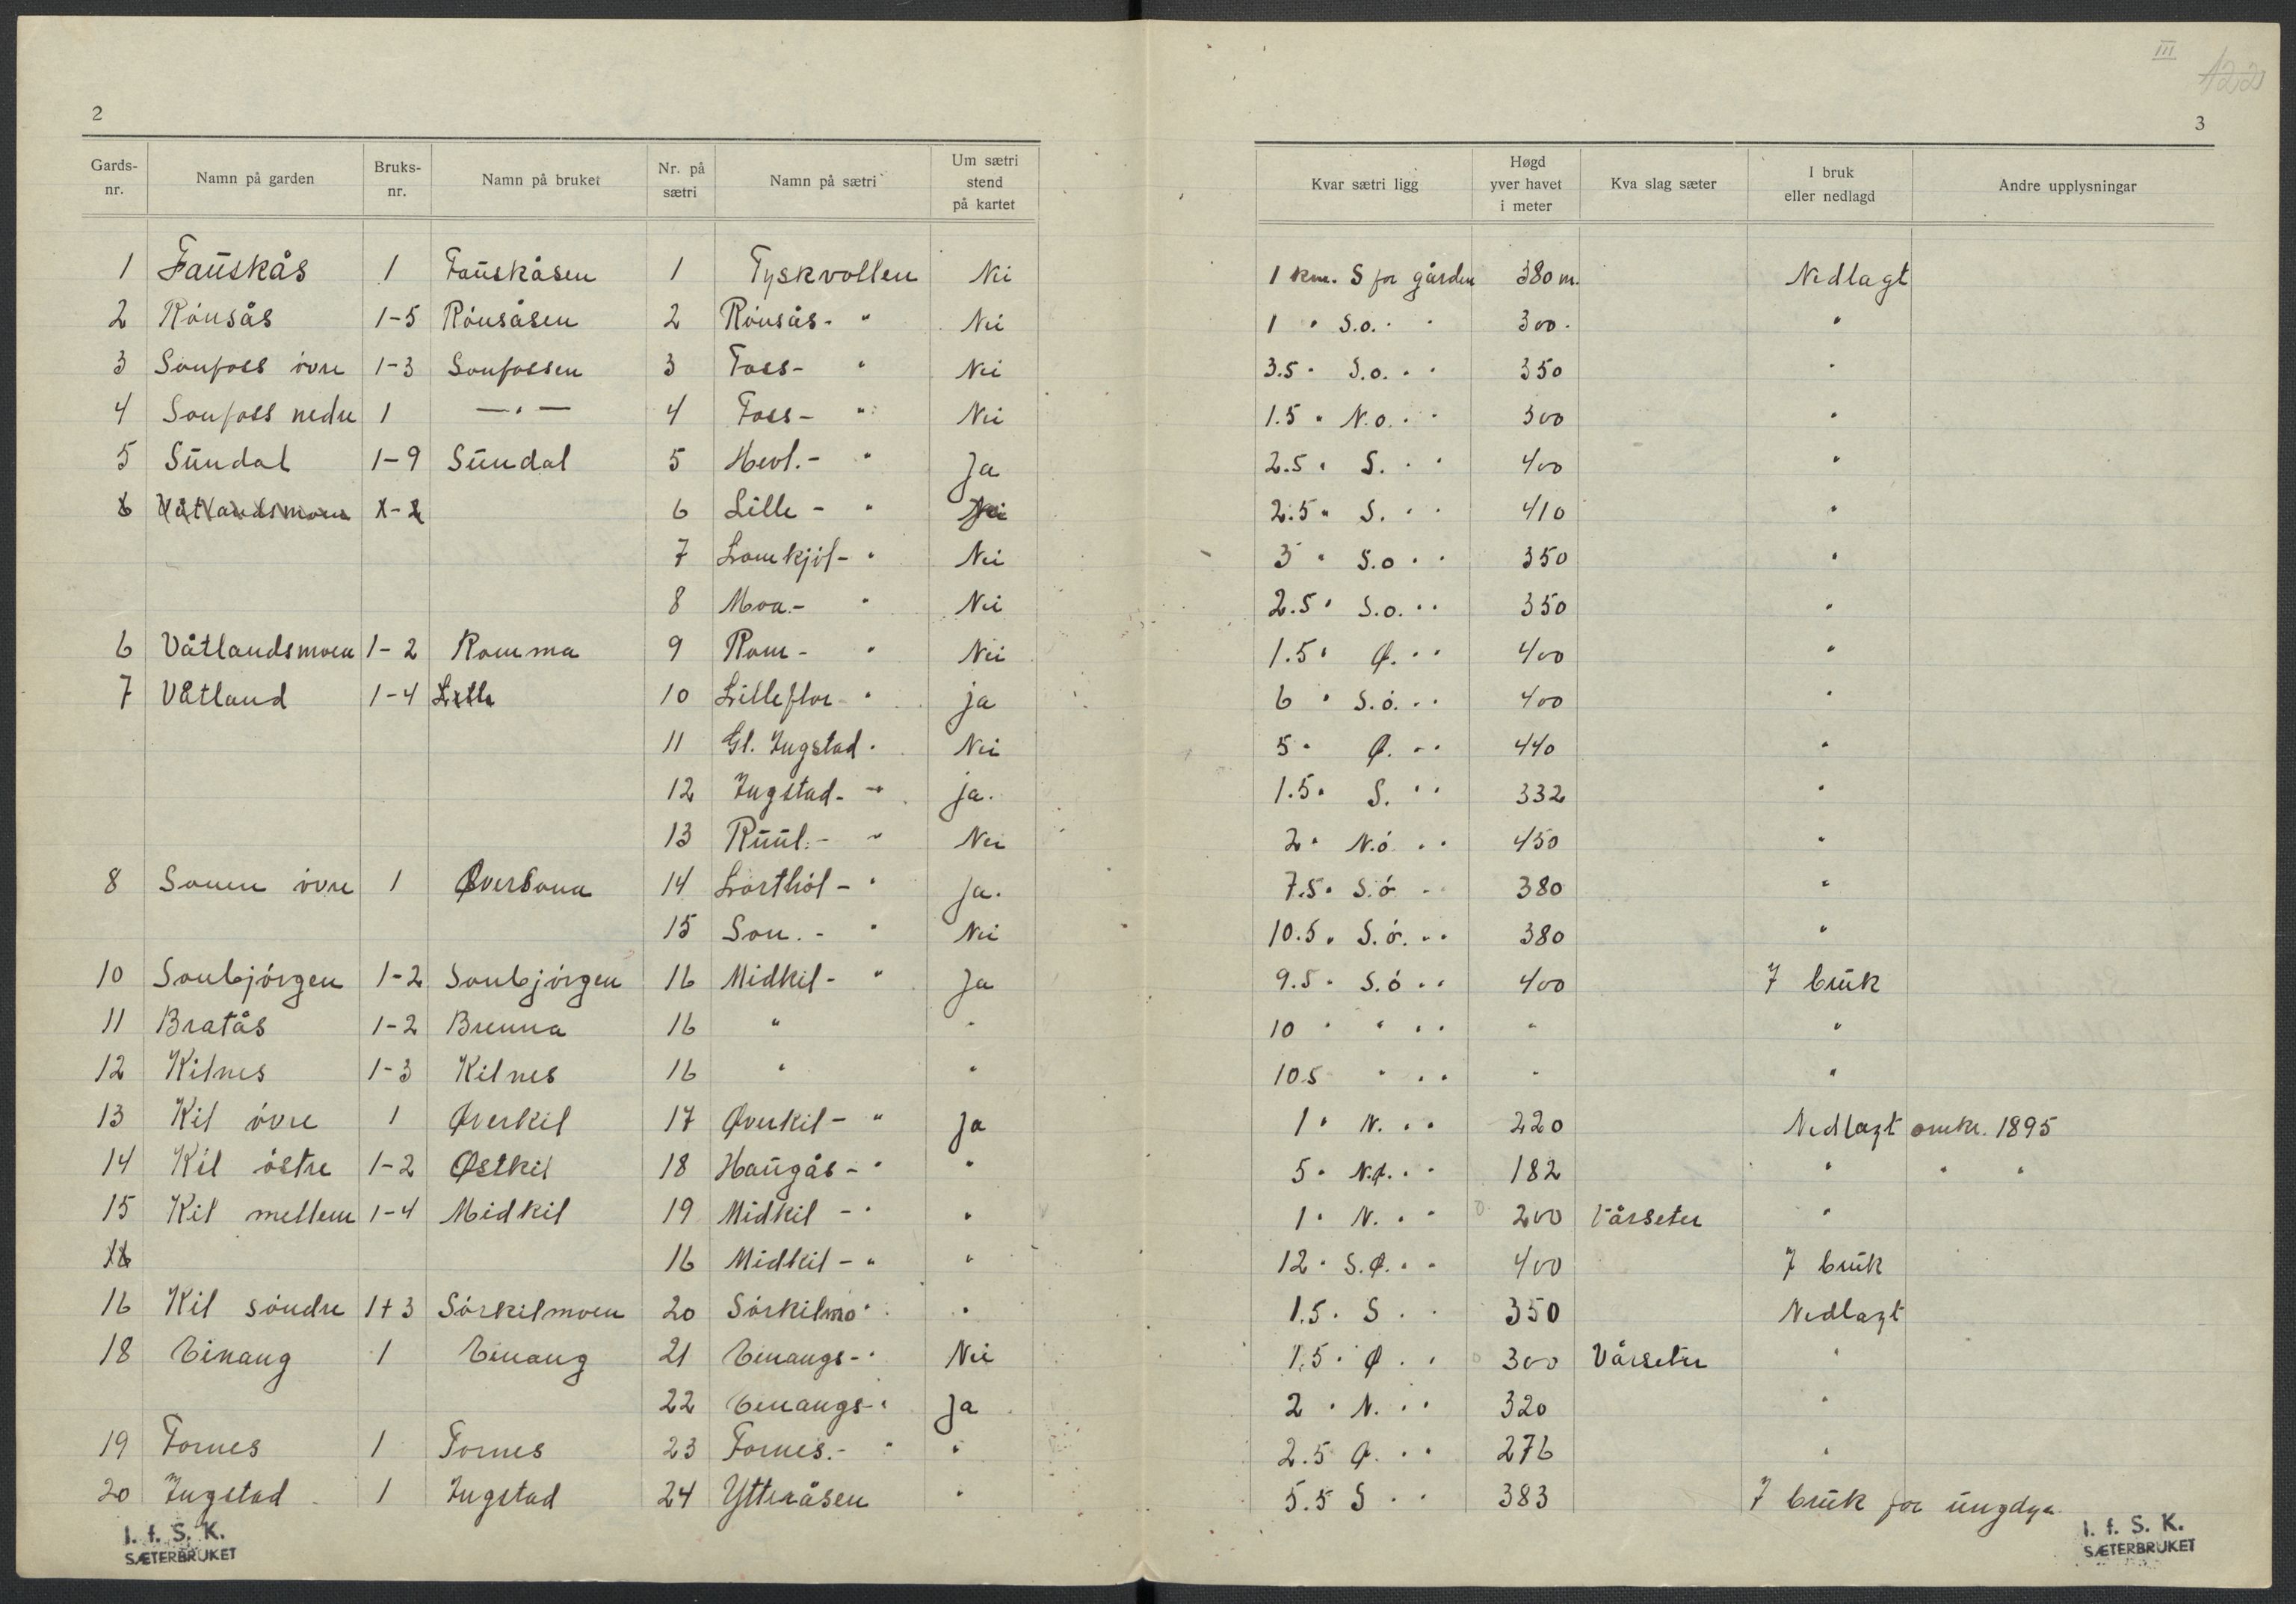 III
122
2
3
Gards-nr. Namn på garden Bruks-nr. Namn på bruket Nr. på sætri Namn på sætri Um sætri stend på kartet Kvar sætri ligg Høgd yver havet i meter Kva slag sæter I bruk eller nedlagd Andre upplysningar
1 Fauskås 1 Fauskåsen 1 Tyskvollen Nei 1 km. S for gården 380 m. Nedlagt
2 Rönsås 1-5 Rönsåsen 2 Rönsås- " Nei 1 " S.o. " " 300 "
3 Sonfoss övre 1-3 Sonfossen 3 Foss- " Nei 3.5 " S.o. " " 350 "
4 Sonfoss nedre 1 —"— 4 Foss- " Nei 1.5 " N.o. " " 300 "
5 Sundal 1-9 Sundal 5 Hevl.- " Ja 2.5 " S. " " 400 "
6 Våtlandsmoen 1-2 6 Lille- " 2.5 " S. " " 410 "
7 Lomkjöl- " Nei 3 " S.o " " 350 "
8 Moa.- " Nei 2.5 " S.o. " " 350 "
6 Våtlandsmoen 1-2 Romma 9 Rom- " Nei 1.5 " Ø. " " 400 "
7 Våtland 1-4 Lille 10 Lilleflor- " ja 6 " S.ö. " " 400 "
11 Gl. Ingstad " Nei 5 " Ø. " " 440 "
12 Ingstad- " ja. 1.5 " S. " " 332 "
13 Ruul.- " Nei 2 " N.ö " " 450 "
8 Sonen övre 1 Øversona 14 Lorthöl- " Ja. 7.5 " S.ö " 380 "
15 Son.- " Nei 10.5 " S.ö. " " 380 "
10 Sonbjörgen 1-2 Sonbjörgen 16 Midkil- " Ja 9.5 " S.ö " " 400 I bruk
11 Bratås 1-2 Brenna 16 " " 10 " " " " " "
12 Kilnes 1-3 Kilnes 16 " " 10.5 " " " " "
13 Kil övre 1 Øverkil 17 Øverkil- " Ja 1 " N. " " 220 Nedlagt omkr. 1895
14 Kil östre 1-2 Østkil 18 Haugås- " " 5 " N.ø. " " 182 " " "
15 Kil mellem 1-4 Midkil 19 Midkil- " " 1 " N. " " 200 Vårseter "
16 16 Midkil- " " 12 " S.Ø. " " 400 I bruk
16 Kil söndre 1+3 Sörkilmoen 20 Sörkilmo " " 1.5 " S " " 350 Nedlagt
18 Einang 1 Einang 21 Einangs- " Nei 1.5 " Ø " " 300 Vårseter "
22 Einangs- " Ja 2 " N. " " 320 "
19 Fornes 1 Fornes 23 Fornes.- " " 2.5 Ø. " " 276 "
20 Ingstad 1 Ingstad 24 Ytteråsen " 5.5 S " " 383 I bruk for ungdyr
I. f. S. K.
SÆTERBRUKET
I. f. S. K.
SÆTERBRUKET